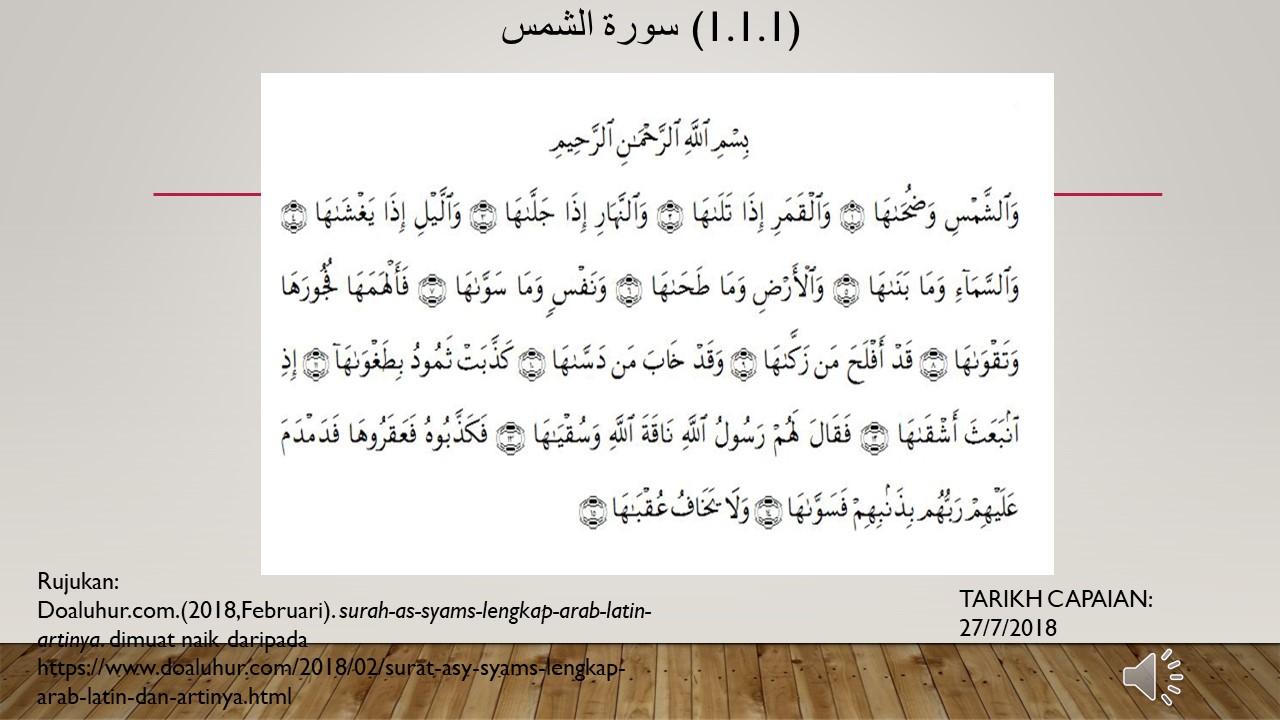 (1.1.1) سورة الشمس
بِسْمِ ٱللَّهِ ٱلرَّحْمَـٰنِ ٱلرَّحِيمِ
وَٱلشَّمْسِ وَضُحَىٰهَا ١ وَٱلْقَمَرِ إِذَا تَلَىٰهَا ٢ وَٱلنَّهَارِ إِذَا جَلَّىٰهَا ٣ وَٱلَّيْلِ إِذَا يَغْشَىٰهَا ٤
وَٱلسَّمَآءِ وَمَا بَنَىٰهَا ٥ وَٱلْأَرْضِ وَمَا طَحَىٰهَا ٦ وَنَفْسٍ وَمَا سَوَّىٰهَا ٧ فَأَلْهَمَهَا فُجُورَهَا
وَتَقْوَىٰهَا ٨ قَدْ أَفْلَحَ مَن زَكَّىٰهَا ٩ وَقَدْ خَابَ مَن دَسَّىٰهَا ١٠ كَذَّبَتْ ثَمُودُ بِطَغْوَىٰهَآ ١١ إِذِ
ٱنۢبَعَثَ أَشْقَىٰهَا ١٢ فَقَالَ لَهُمْ رَسُولُ ٱللَّهِ نَاقَةَ ٱللَّهِ وَسُقْيَـٰهَا ١٣ فَكَذَّبُوهُ فَعَقَرُوهَا فَدَمْدَمَ
عَلَيْهِمْ رَبُّهُم بِذَنۢبِهِمْ فَسَوَّىٰهَا ١٤ وَلَا يَخَافُ عُقْبَـٰهَا ١٥
Rujukan:
Doaluhur.com.(2018,Februari). surah-as-syams-lengkap-arab-latin-
artinya. dimuat naik daripada
https://www.doaluhur.com/2018/02/surat-asy-syams-lengkap-
arab-latin-dan-artinya.html
TARIKH CAPAIAN:
27/7/2018